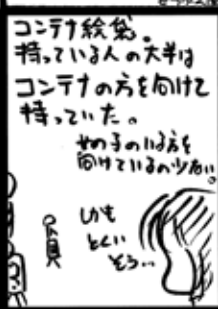 コンテナ絵袋。
持っている人の大半は
コンテナの方を向けて
持っていた。
女の子のいる方を
向けているの少ない。
しかも
とくい
そう…